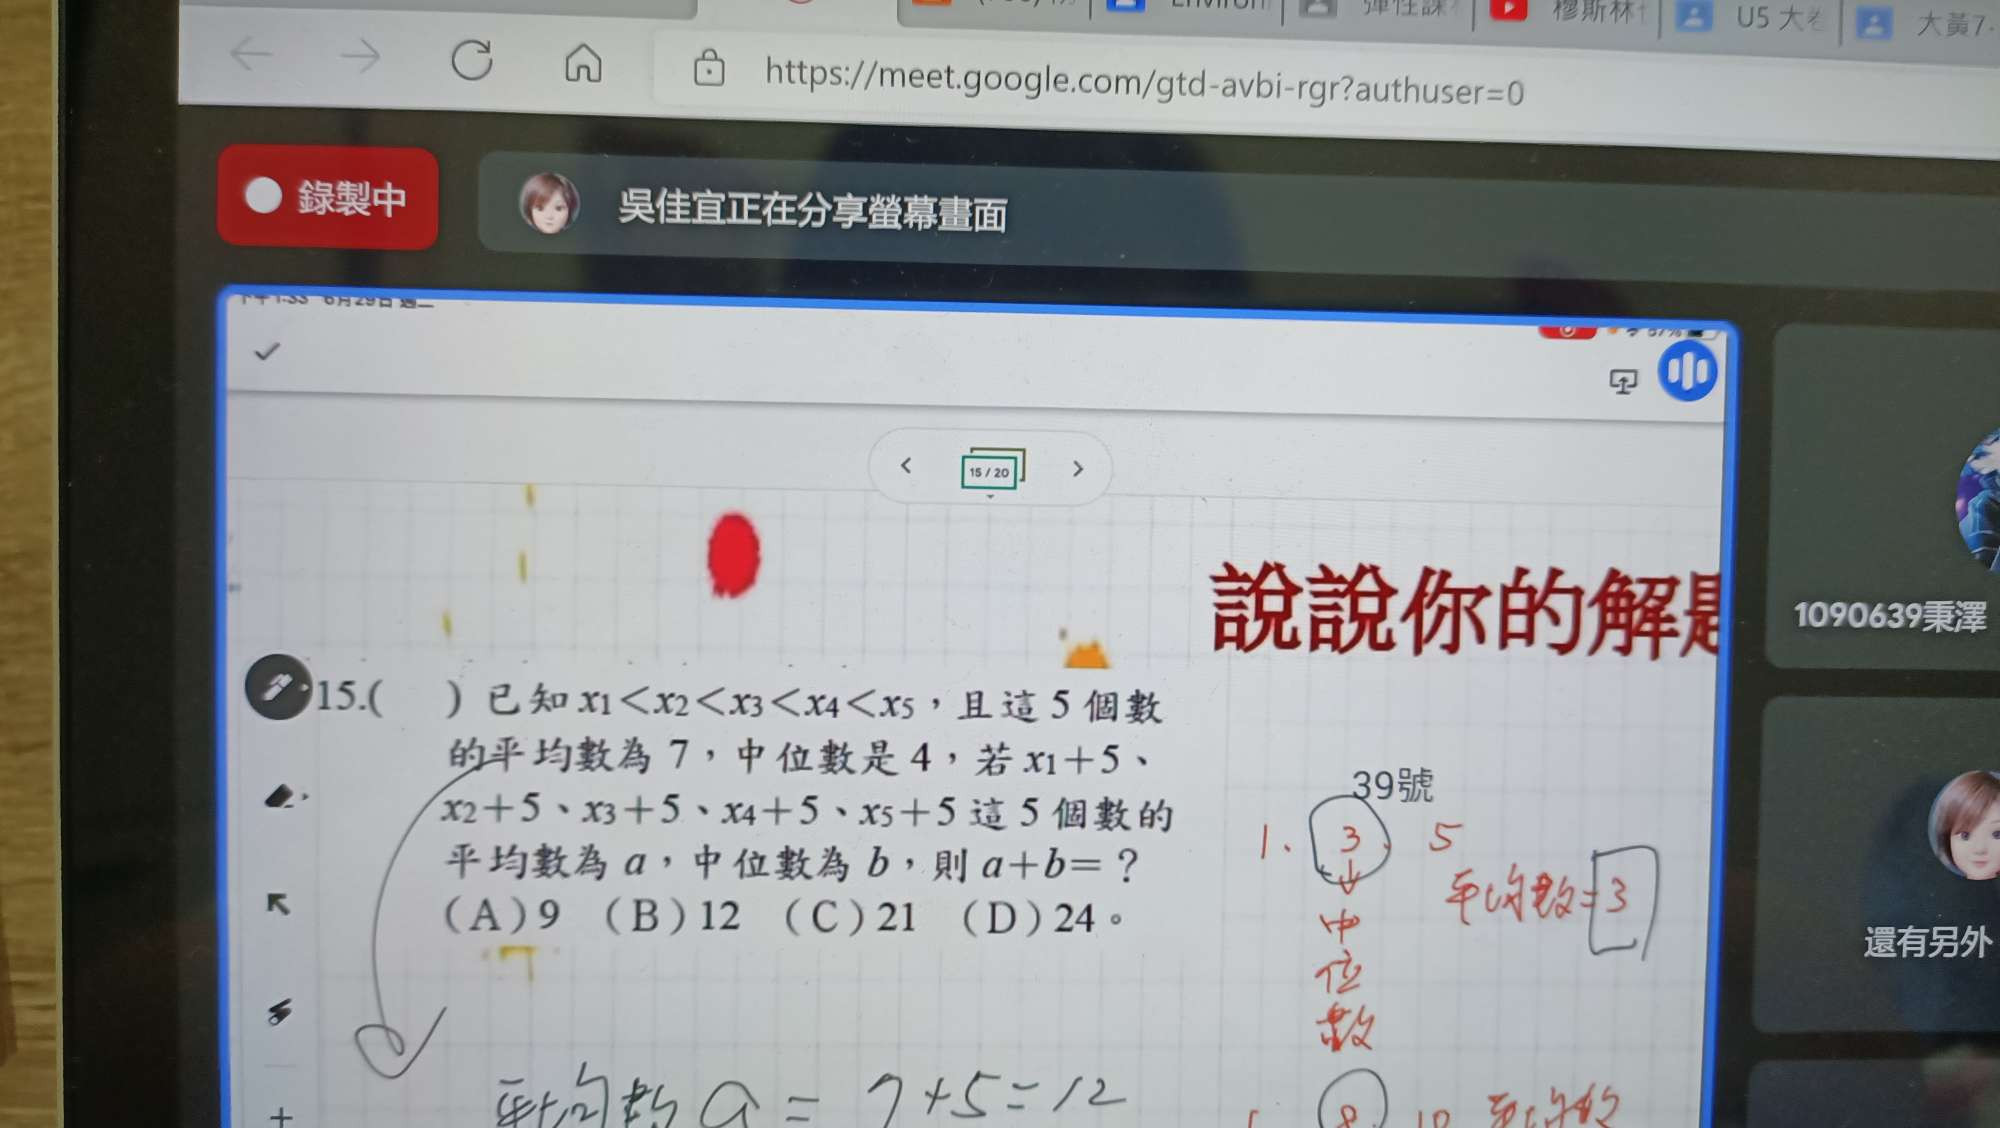 彈性課
穆斯林
U5 大卷
大黃7-
https://meet.google.com/gtd-avbi-rgr?authuser=0
錄製中
吳佳宜正在分享螢幕畫面
下午1:33 6月29日 週二
57%
15 / 20
說說你的解題
1090639秉澤
15.( ) 已知 x1<x2<x3<x4<x5，且這 5 個數
的平均數為 7，中位數是 4，若 x1+5、
x2+5、x3+5、x4+5、x5+5 這 5 個數的
平均數為 a，中位數為 b，則 a+b=？
(A)9 (B)12 (C)21 (D)24。
39號
1. 3. 5
平均數=3
中
位
數
還有另外
平均數 a = 7+5=12
8. 10 平均數